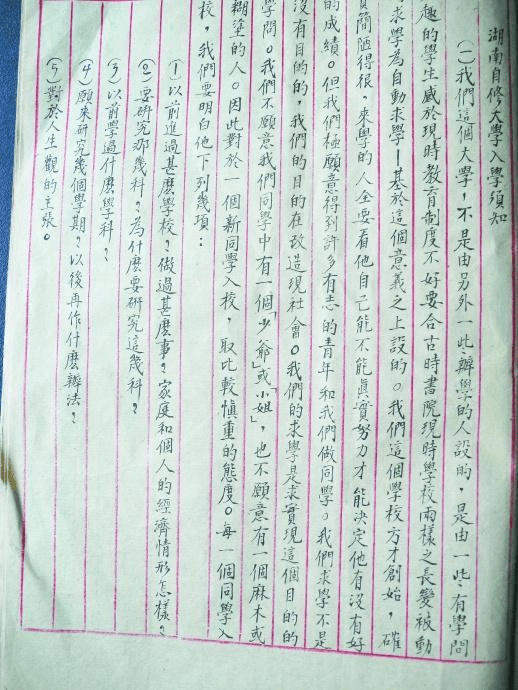 湖南自修大學入學須知
(一)我們這個大學，不是由另外一些辦學的人設的，是由一些有學問
趣的學生感於現時教育制度不好要合古時書院現時學校兩樣之長變被動
求學為自動求學—基於這個意義之上設的。我們這個學校方才創始，確
簡陋得很，來學的人全要看他自己能不能真實努力才能決定他有沒有好
的成績。但我們極願意得到許多有志的青年和我們做同學。我們求學不是
沒有目的的，我們的目的在改造現社會。我們的求學是求實現這個目的的
學問。我們不願意我們同學中有一個「少爺」或「小姐」，也不願意有一個麻木或
糊塗的人。因此對於一個新同學入校，取比較慎重的態度。每一個同學入
校，我們要明白他下列幾項：
(1)以前進過甚麼學校？做過甚麼事？家庭和個人的經濟情形怎樣？
(2)要研究那幾科？為什麼要研究這幾科？
(3)以前學過什麼學科？
(4)願來研究幾個學期？以後再作什麼辦法？
(5)對於人生觀的主張。